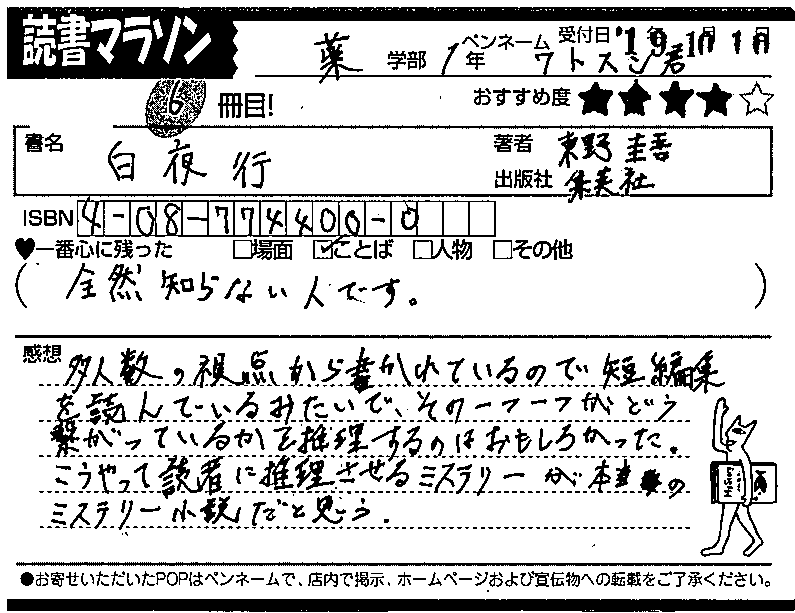 読書マラソン
薬 学部 1年 ペンネーム ワトスン君 受付日 '19年10月10日
6 冊目! おすすめ度 ★★★★☆
書名 白夜行 著者 東野圭吾
出版社 集英社
ISBN 4-08-774400-0
♥一番心に残った □場面 ☑ことば □人物 □その他
(全然知らない人です。)
感想 多人数の視点から書かれているので短編集
を読んでいるみたいで、その一つ一つがどう
繋がっているかを推理するのはおもしろかった。
こうやって読者に推理させるミステリーが本当の
ミステリー小説だと思う。
●お寄せいただいたPOPはペンネームで、店内で掲示、ホームページおよび宣伝物への転載をご了承ください。